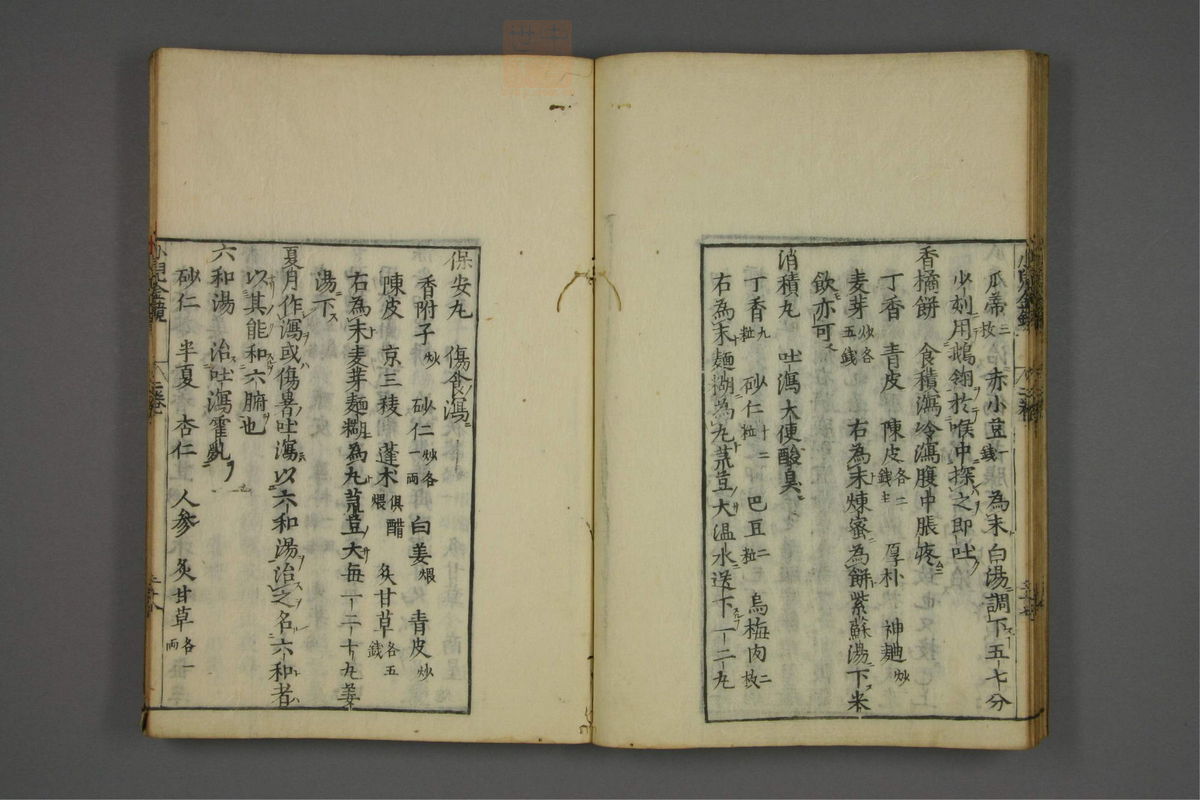 瓜蒂二枚 赤小豆一錢 為末白湯調下五七分
少刻用鵝翎於喉中探之即吐
香橘餅 食積瀉冷瀉腹中脹疼
丁香 青皮 陳皮各二錢 厚朴 神麯炒
麦芽炒各五錢 右為末煉蜜為餅紫蘇湯下米
飲亦可
消積丸 吐瀉大便酸臭
丁香九粒 砂仁十二粒 巴豆二粒 烏梅肉二枚
右為末麵糊為丸荒豆大温水送下一二丸
保安丸 傷食瀉
香附子炒 砂仁炒各一両 白姜煨 青皮炒
陳皮 京三稜 蓬朮俱醋煨 炙甘草各五錢
右為末麦芽麵糊為丸荒豆大每一二十丸姜
湯下
夏月作瀉或傷暑吐瀉以六和湯治之名六和者
以其能和六腑也
六和湯 治吐瀉霍乱
砂仁 半夏 杏仁 人參 炙甘草各一両
小児全鏡 二卷